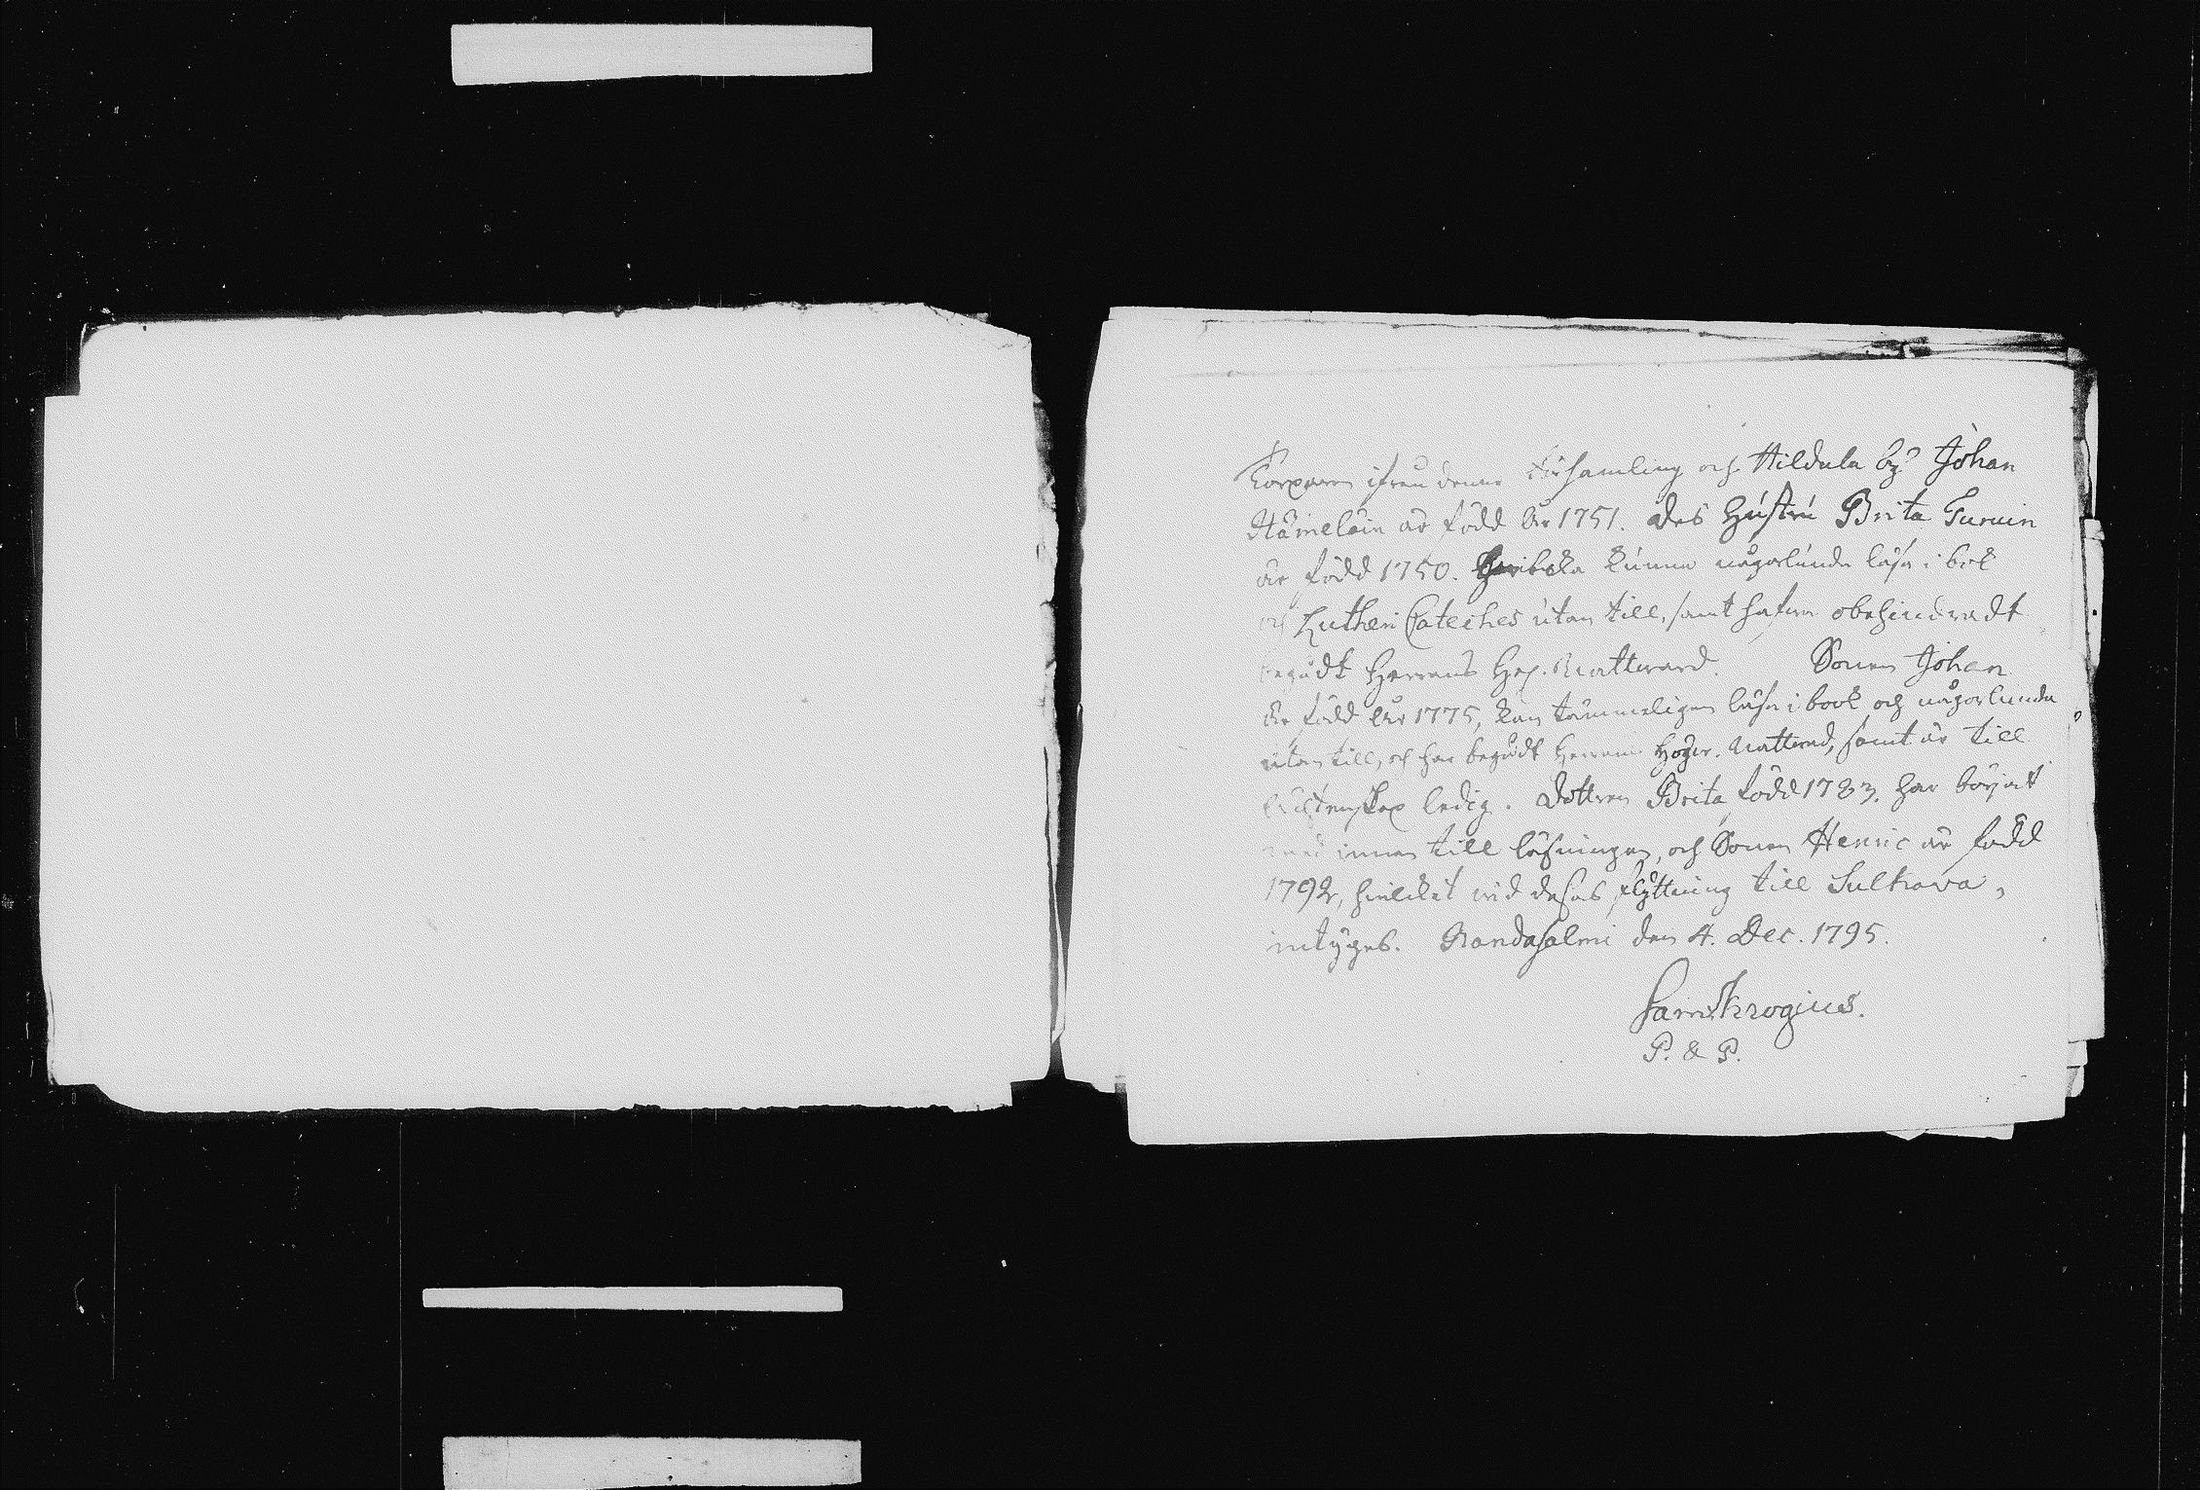 Torparen ifrån denna Församling och Hildula by Johan
Hämeläin är född År 1751. Des Hústrú Brita Turuin
är född 1750. båda kúnna någorlúnda läsa i bok
och Lutheri Cateches útan till, samt hafva obehindradt
begådt Herrans Hel. Nattvard. Sonen Johan
är född År 1775, kan tämmeligen läsa i book och någorlunda
útan till, och har begådt Herrans Högv. Nattvard, samt är till
Ecktenskap ledig. Dottren Brita född 1783, har börjat
med innan till läsningen, och Sonen Henric är född
1792, hvilcket vid dessas flyttning till Sulkava,
intÿgas. Randasalmi den 4. Dec. 1795.
Sam. Krogius.
P. & P.